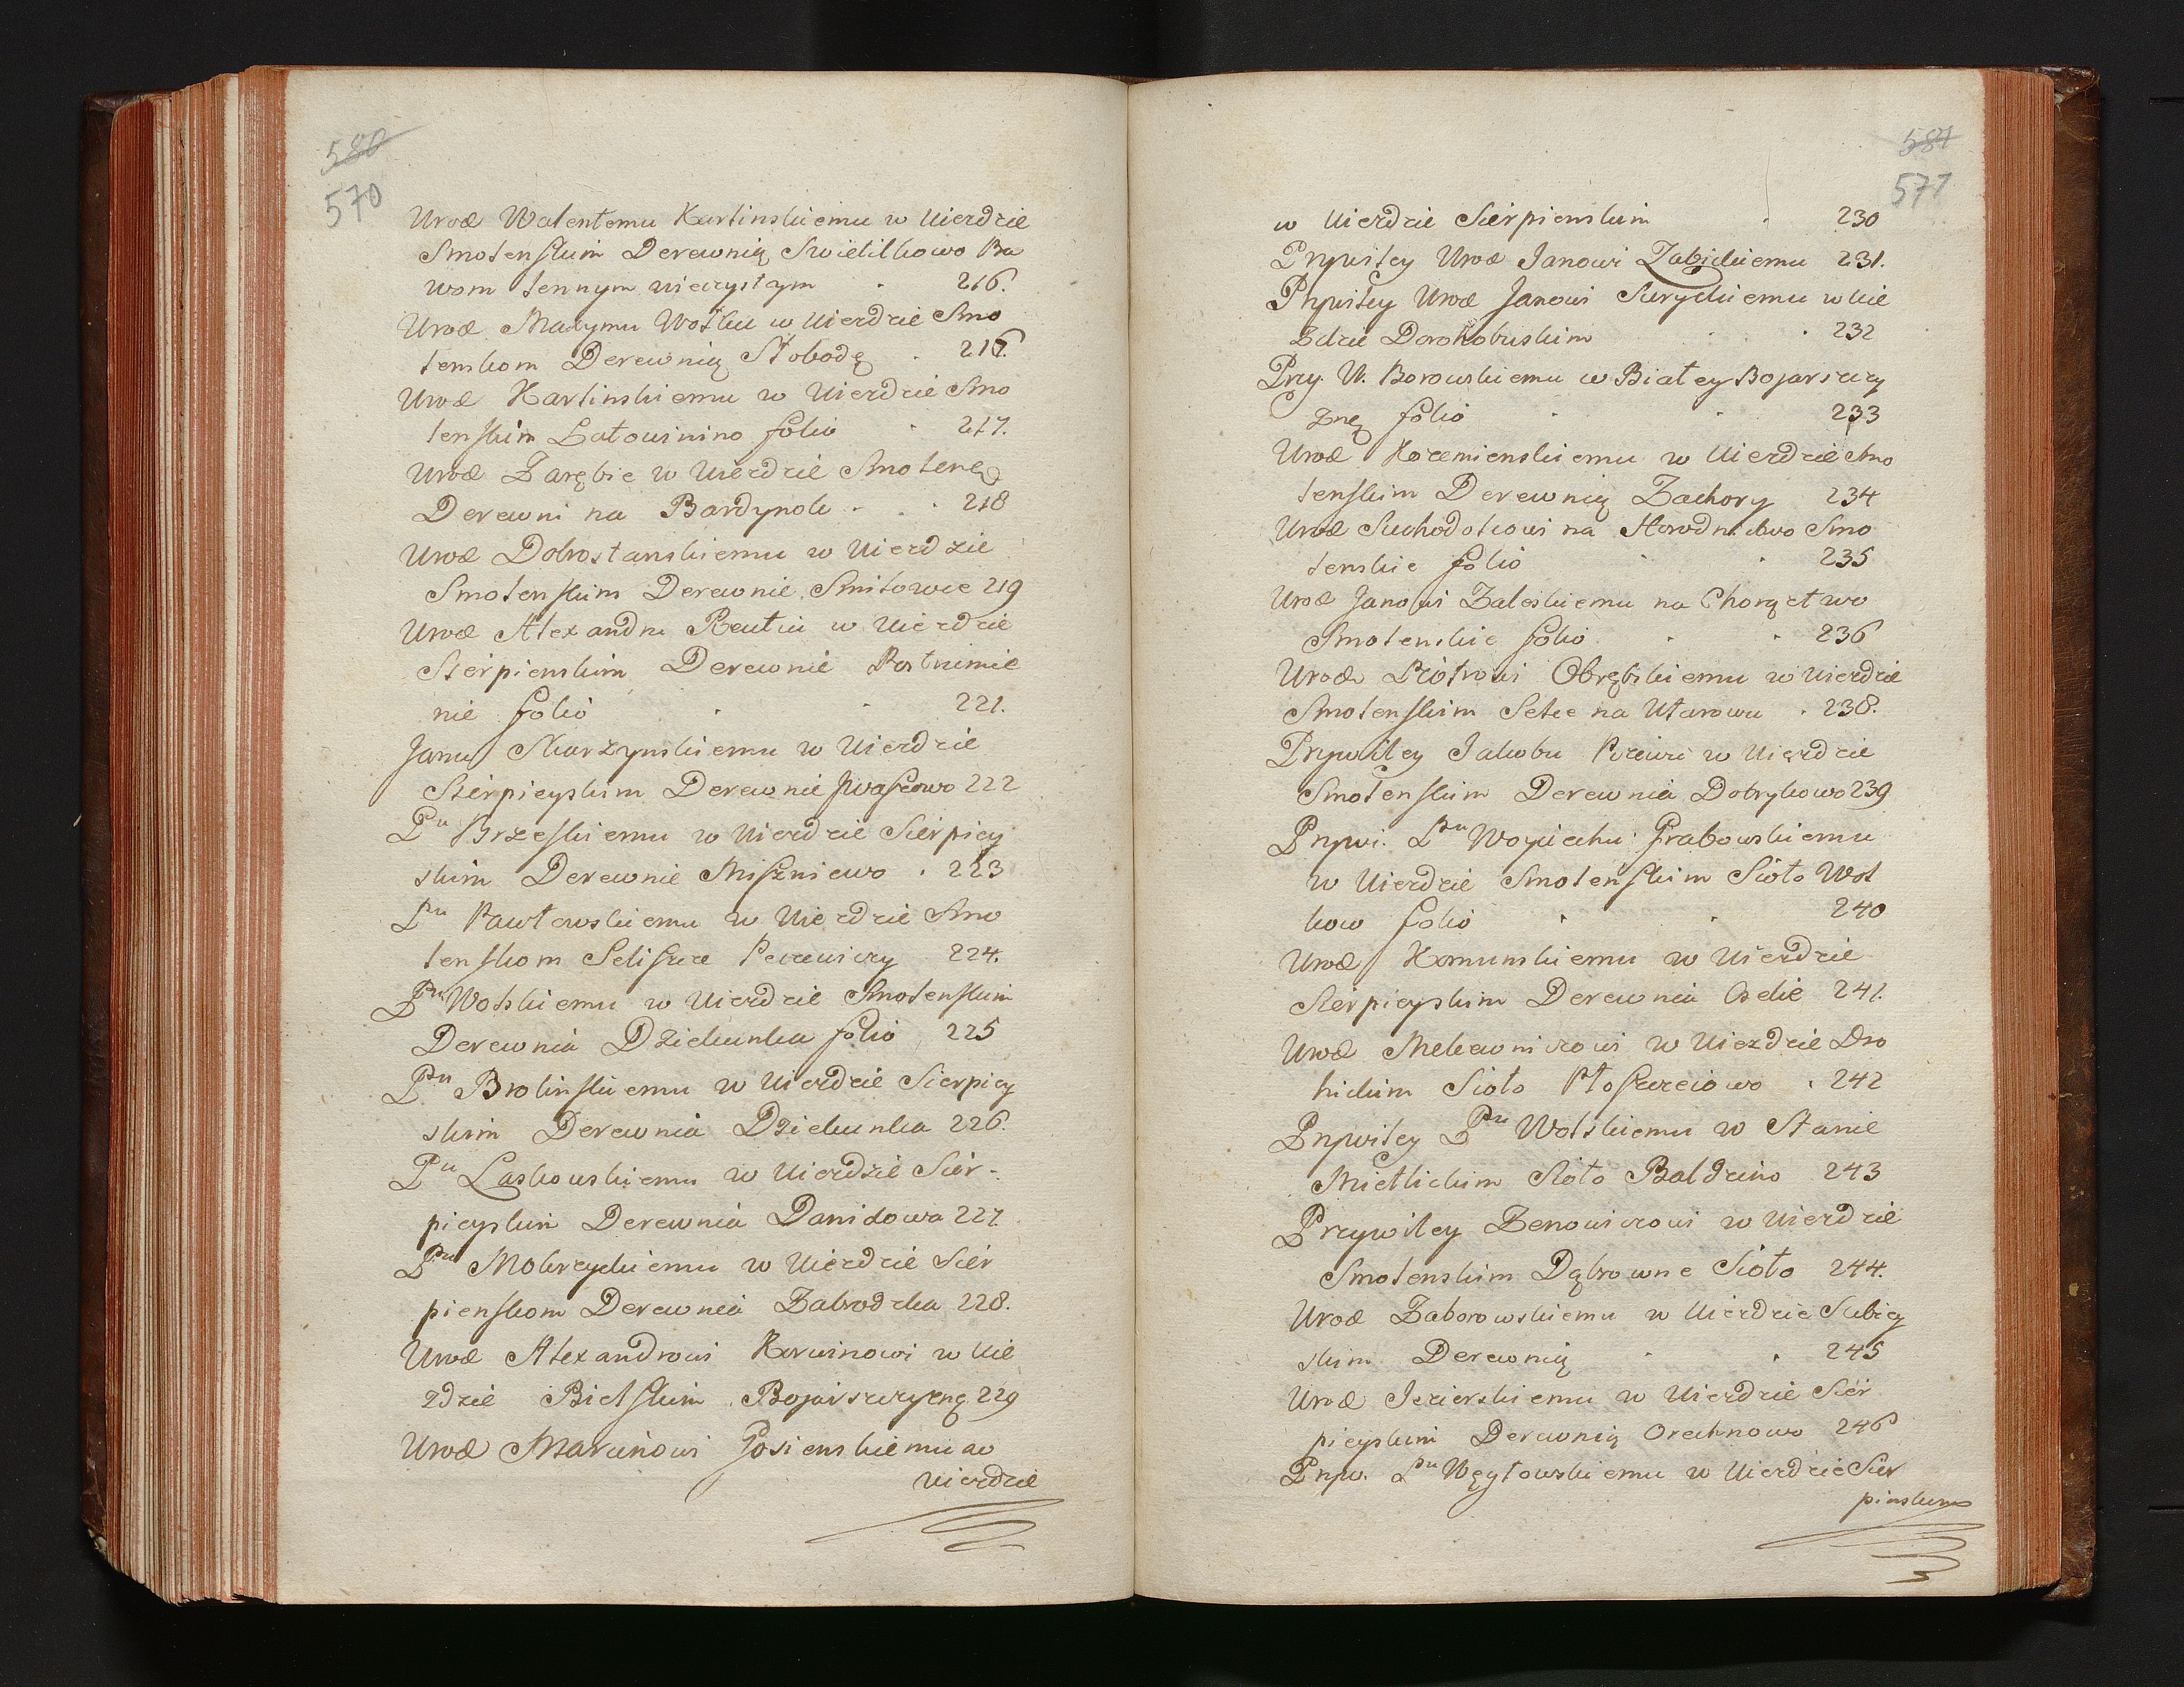 580
570
Urod Walentemu Karlinskiemu w Uiezdzie
Smolenskim Derewnią Swietilkowo Pa
wom lennym wieczystym 216.
Urod Maxymu Wołku w Uiezdzie Smo
lenskom Derewnią Słobodę 216.
Urod Karlinskiemu w Uiezdzie Smo
lenskim Łatowinino folio 217.
Urod Zarębie w Uiezdzie Smolens
Derewni na Bardynoli 218
Urod Dobrostanskiemu w Uiezdzie
Smolenskim Derewnie Smiłowce 219
Urod Alexandru Reuttu w Uiezdzie
Sierpienskim Derewnie Postrumie
nie folio 221.
Janu Skarzynskiemu w Uiezdzie
Sierpieyskim Derewnie Jwaszowo 222
Pu Brzeskiemu w Uiezdzie Sierpiey
skim Derewnie Miszniewo 223
Pu Pawłowskiemu w Uiezdzie Smo
lenskom Seliszcze Peczewiczy 224.
Pu Wolskiemu w Uiezdzie Smolenskim
Derewnia Dziekunka folio 225
Pu Brolinskiemu w Uiezdzie Sierpiey
skim Derewnia Dziekunka 226.
Pu Laskowskiemu w Uiezdzie Sier-
pieyskim Derewnia Danidowa 227
Pu Mokrzyckiemu w Uiezdzie Sier
pienskom Derewnia Zabrodzka 228.
Urod Alexandrowi Korwinowi w Uie
zdzie Bielskim Bojarszczyznę 229
Urod Marcinowi Gosienskiemu w
Uiezdzie
587
571
w Uiezdzie Sierpienskim 230
Prywiley Urod Janowi Zabickiemu 231.
Prywiley Urod Janowi Suryckiemu w Uie
zdzie Dorohobuskim 232
Przy. U. Borowskiemu w Białey Bojarszczy
znę folio 233
Urod Korzemienskiemu w Uiezdzie Smo
lenskim Derewnią Zachory 234
Urod Suchodolcowi na Horodnictwo Smo
lenskie folio 235
Urod Janowi Zaleskiemu na Chorąstwo
Smolenskie folio 236
Urod Piotrowi Obrębskiemu w Uiezdzie
Smolenskim Selce na Utarowa 238.
Prywiley Jakobu Pzewi w Uiezdzie
Smolenskim Derewnia Dobrykowo 239
Prywi. Pu Woyciechu Grabowskiemu
w Uiezdzie Smolenskim Sioło Wol
kow folio 240
Urod Komunskiemu w Uiezdzie
Sierpieyskim Derewnia Oselie 241.
Urod Melewniczowi w Uiezdzie Dro
hickim Sioło Płoszczciowo 242
Prywiley Pu Wolskiemu w Stanie
Mietlickim Sioło Baldzino 243
Przywiley Zenowiczowi w Uiezdzie
Smolenskim Dąbrowne Sioło 244.
Urod Zaborowskiemu w Uiezdzie Subiey
skim Derewnią 245
Urod Jezierskiemu w Uiezdzie Sier
pieyskim Derewnią Orechnowo 246
Pryw. Pu Węgłowskiemu w Uiezdzie Sier
pinskim